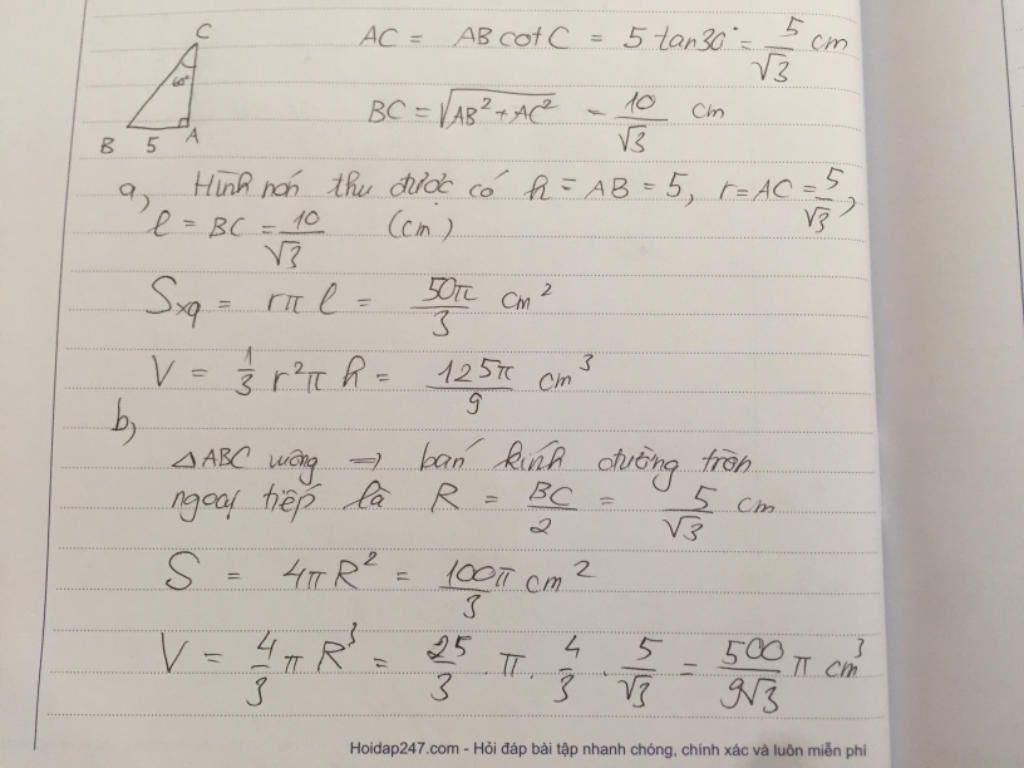 C
60°
B 5 A
AC = AB cot C = 5 tan30° = 5/√3 cm
BC = √(AB² + AC²) = 10/√3 cm
a, Hình nón thu được có h = AB = 5, r = AC = 5/√3,
l = BC = 10/√3 (cm)
Sxq = rπ l = 50π/3 cm²
V = 1/3 r²π h = 125π/9 cm³
b,
△ABC vuông => bán kính đường tròn
ngoại tiếp là R = BC/2 = 5/√3 cm
S = 4πR² = 100π/3 cm²
V = 4/3 πR³ = 25/3 . π . 4/3 . 5/√3 = 500/9√3 π cm³
Hoidap247.com - Hỏi đáp bài tập nhanh chóng, chính xác và luôn miễn phí